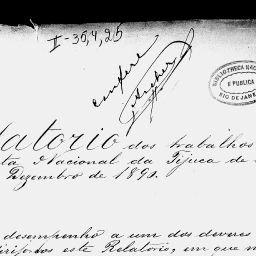 II-35,4,25
confere
BIBLIOTHECA NAC
E PUBLICA
RIO DE JANE
latorio dos trabalhos
ta Nacional da Tijuca de
Dezembro de 1890.
desempenho a um dos deveres
este Relatorio, em que